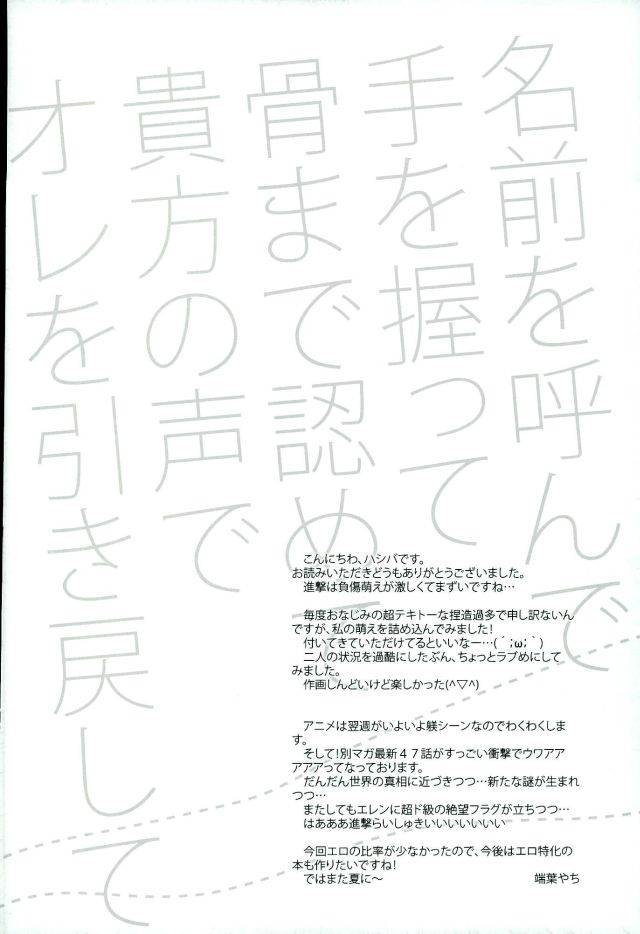 名前を呼んで
手を握って
骨まで認めて
貴方の声で
オレを引き戻して
こんにちわ、ハシバです。
お読みいただきどうもありがとうございました。
進撃は負傷萌えが激しくてまずいですね…
毎度おなじみの超テキトーな捏造過多で申し訳ないん
ですが、私の萌えを詰め込んでみました!
付いてきていただけてるといいなー…(´;ω;`)
二人の状況を過酷にしたぶん、ちょっとラブめにして
みました。
作画しんどいけど楽しかった(^▽^)
アニメは翌週がいよいよ躾シーンなのでわくわくしま
す。
そして!別マガ最新47話がすっごい衝撃でウワアア
アアアアってなっております。
だんだん世界の真相に近づきつつ…新たな謎が生まれ
つつ…
またしてもエレンに超ド級の絶望フラグが立ちつつ…
はあああ進撃らいしゅきいいいいいいい
今回エロの比率が少なかったので、今後はエロ特化の
本も作りたいですね!
ではまた夏に～
端葉やち